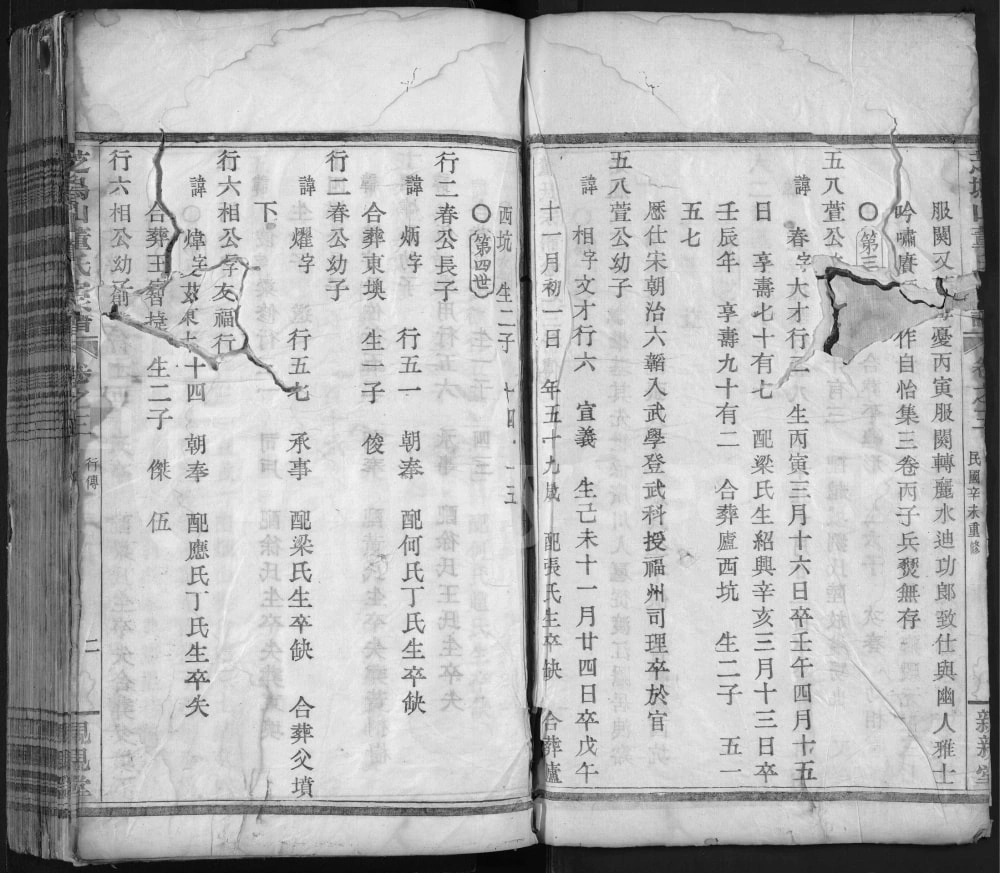 民國辛未重修
新新堂
服闋又憂丙寅服闋轉麗水迪功郎致仕與幽人雅士
吟嘯賡作自怡集三卷丙子兵燹無存
○第三
五八萱公
諱春字大才行三九生丙寅三月十六日卒壬午四月十五
日享壽七十有七配梁氏生紹興辛亥三月十三日卒
壬辰年享壽九十有二合葬廬西坑生二子五一
五七
五八萱公幼子
歷仕宋朝治六韜入武學登武科授福州司理卒於官
諱相字文才行六宣義生己未十一月廿四日卒戊午
十一月初一日年五十九歲配張氏生卒缺合葬廬
西坑生二子十四十五
○第四世
行二春公長子
諱炳字行五一朝奉配何氏丁氏生卒缺
合葬東墺生一子俊
行二春公幼子
諱燿字行五七承事配梁氏生卒缺合葬父墳
下
行六相公字友福行
諱煒字十四朝奉配應氏丁氏生卒失
合葬王生二子傑伍
行六相公幼子
行傳
二